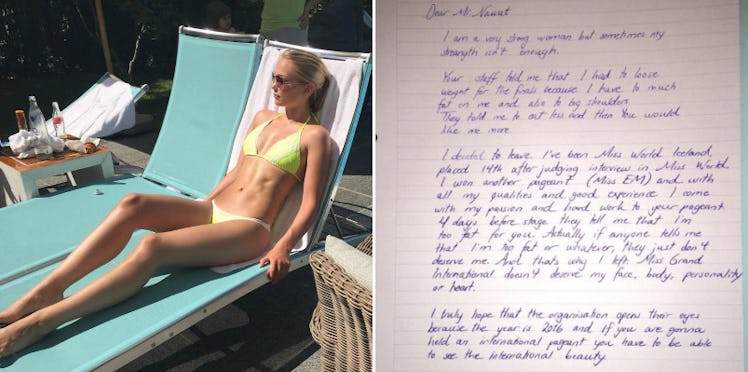 Dear Mr. Nawat
I am a very strong woman but sometimes my
strength isn't enough.
Your staff told me that I had to loose
weight for the finals because I have to much
fat on me and also to big shoulders.
They told me to eat less and then You would
like me more.
I decided to leave. I've been Miss World Iceland,
placed 14th after judging interview in Miss World.
I won another pageant (Miss EM) and with
all my qualities and good experience I came
with my passion and hard work to your pageant
4 days before stage they tell me that i'm
too fat for you. Actually if anyone tells me
that I'm too fat or whatever, they just don't
deserve me. And thats why I left. Miss Grand
International doesn't deserve my face, body, personality
or heart.
I truly hope that the organisation opens their eyes
because the year is 2016 and if you are gonna
hold an international pageant you have to be able
to see the international beauty